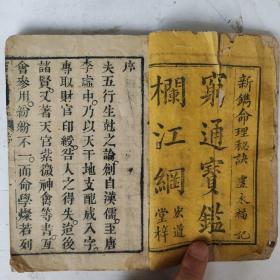 新鐫命理秘訣
永福記
窮通寶鑑
欄江網
宏道
堂梓
序
夫五行生尅之論創自漢儒至唐
李虛中乃以天干地支配成八字
專取財官印綬人之得失迨後
諸賢又著天官紫微神禽等書互
會參用紛紛不一而命學燦若列